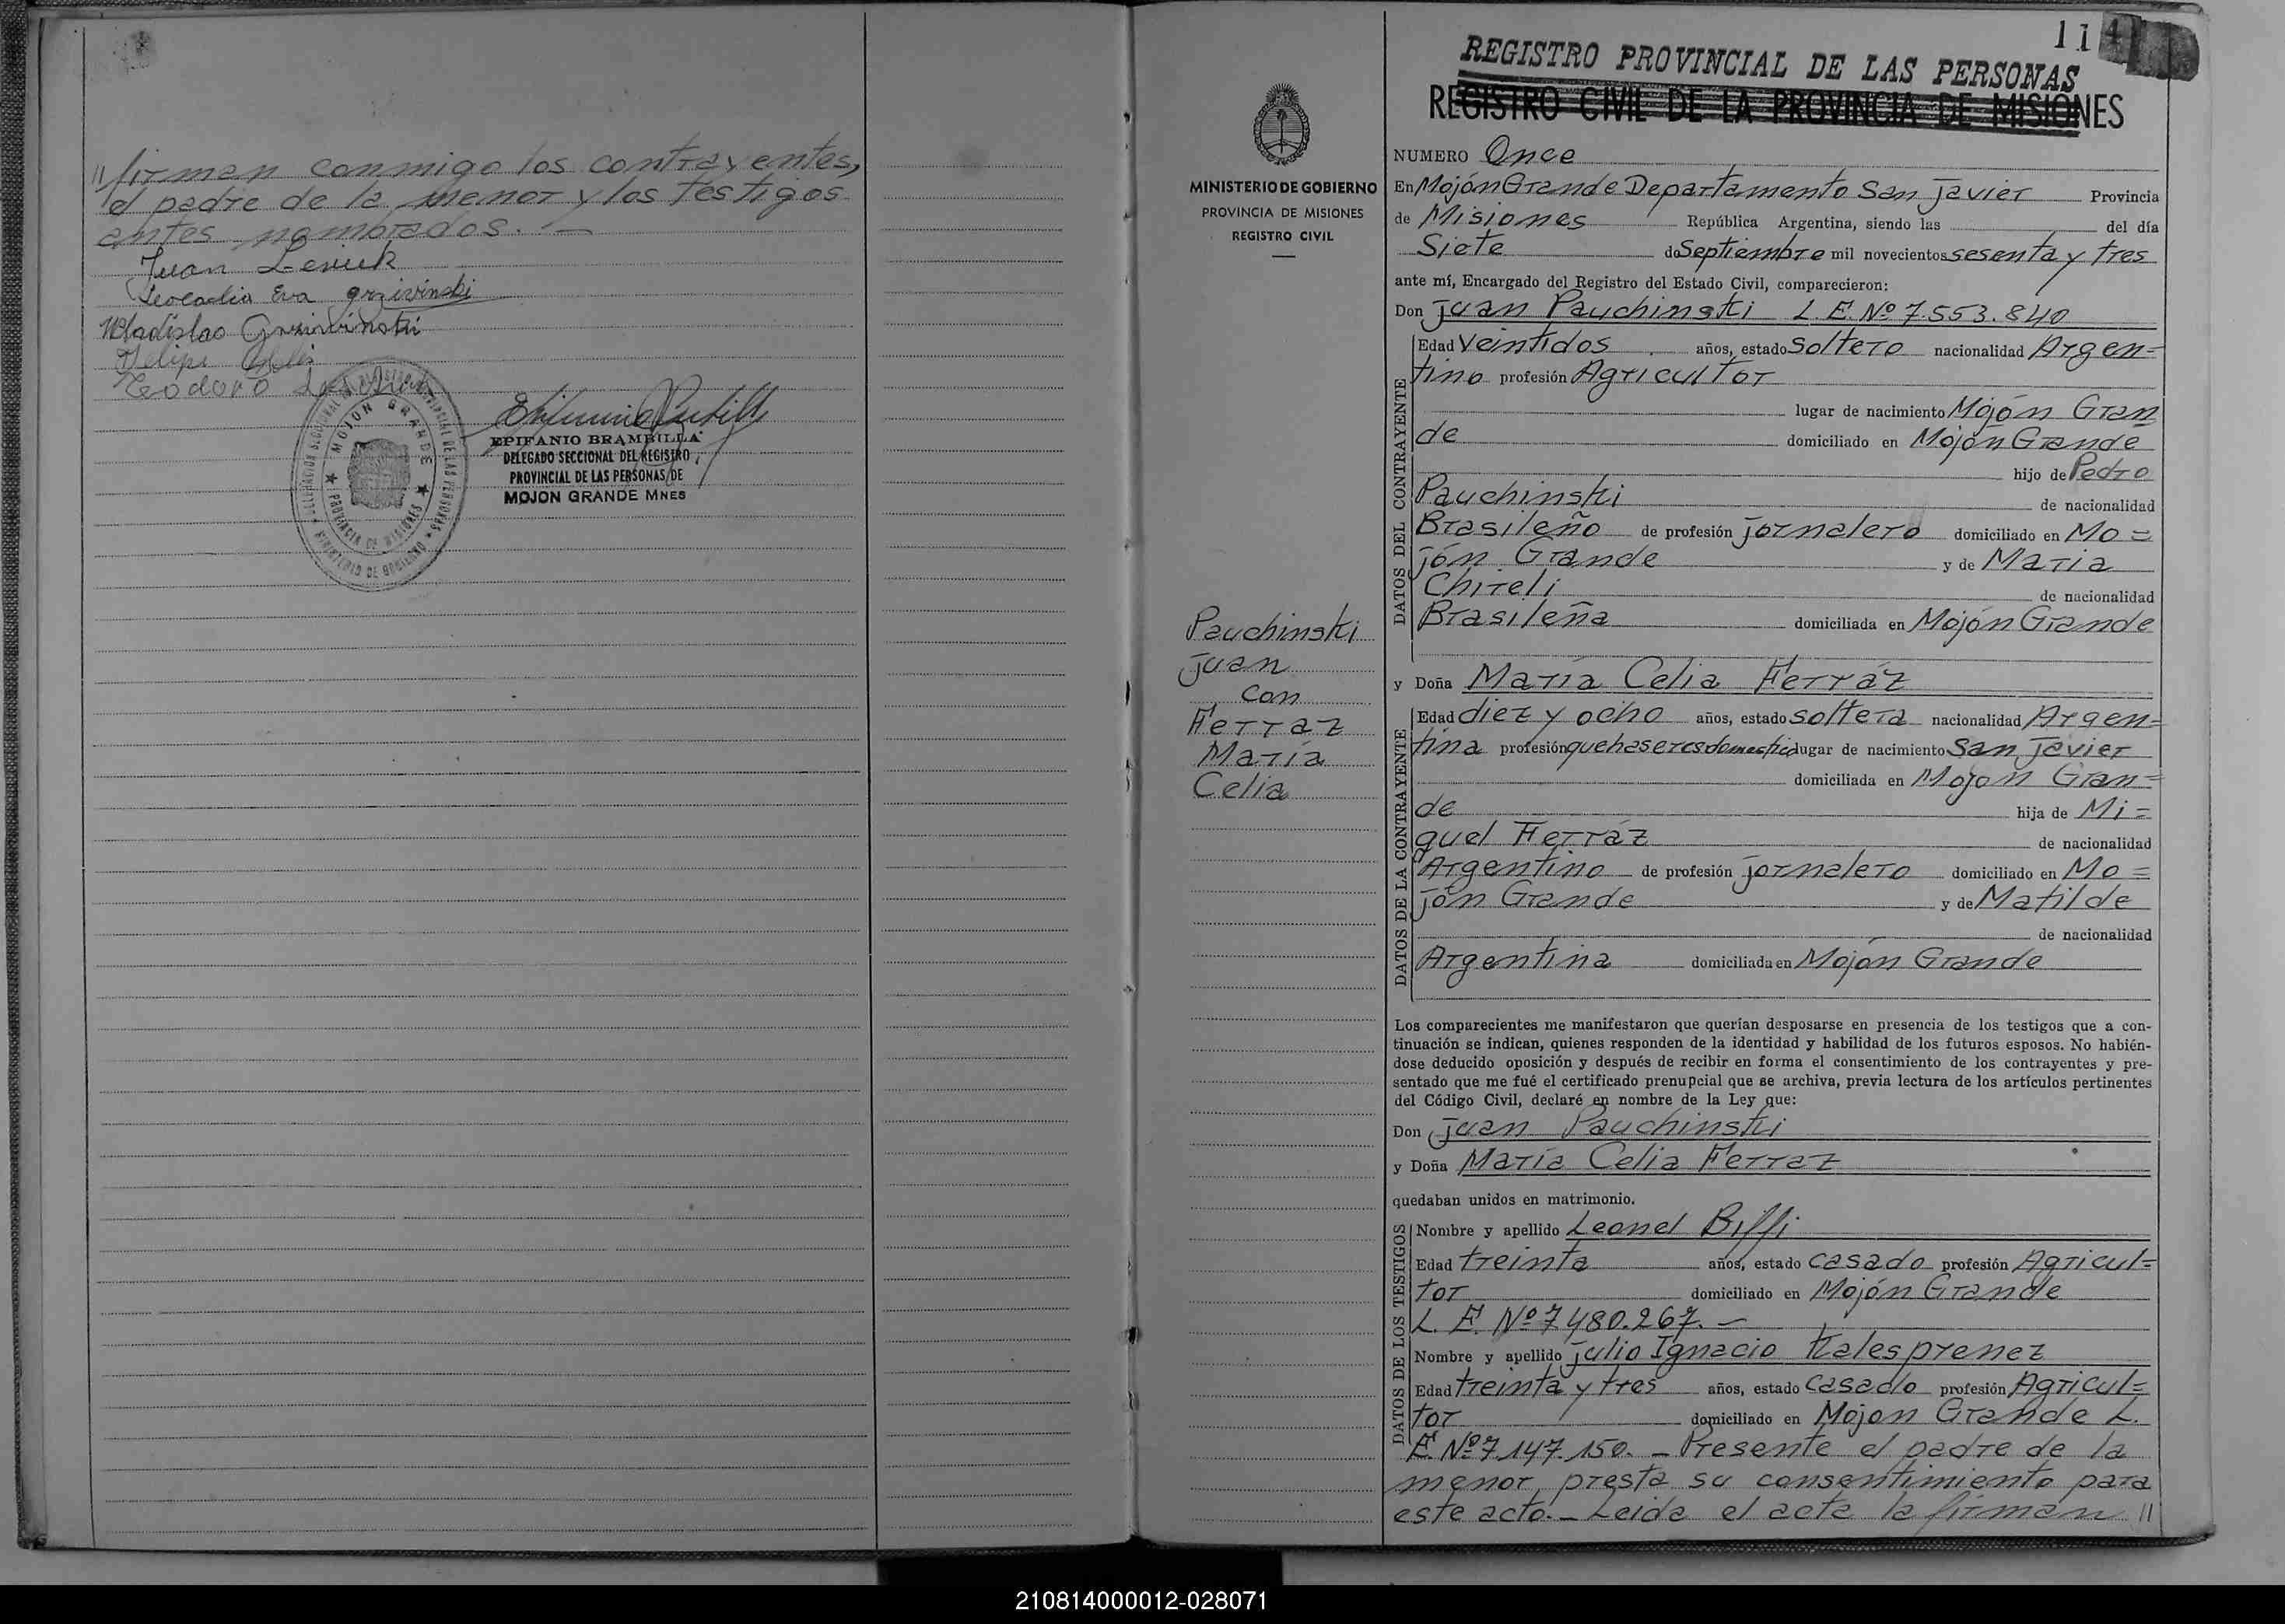 // firman conmigo los contrayentes,
el padre de la menor y los testigos
antes nombrados. —
Juan Leniuk
Leocadia Eva Grzivinski
Wladislao Grzivinski
Felipe
Teodoro
EPIFANIO BRAMBILLA
DELEGADO SECCIONAL DEL REGISTRO
PROVINCIAL DE LAS PERSONAS DE
MOJON GRANDE MNES
MOJON GRANDE
PROVINCIA DE MISIONES
MINISTERIO DE GOBIERNO
MINISTERIO DE GOBIERNO
PROVINCIA DE MISIONES
REGISTRO CIVIL
Pauchinski
Juan
con
Ferraz
María
Celia
114
REGISTRO PROVINCIAL DE LAS PERSONAS
REGISTRO CIVIL DE LA PROVINCIA DE MISIONES
NUMERO Once
En Mojón Grande Departamento San Javier Provincia
de Misiones República Argentina, siendo las del día
Siete de Septiembre mil novecientos sesenta y tres
ante mí, Encargado del Registro del Estado Civil, comparecieron:
Don Juan Pauchinski L.E. Nº 7.553.840
DATOS DEL CONTRAYENTE
Edad Veintidos años, estado Soltero nacionalidad Argen=
tino profesión Agricultor
lugar de nacimiento Mojón Gran
de domiciliado en Mojón Grande
hijo de Pedro
Pauchinski de nacionalidad
Brasileño de profesión jornalero domiciliado en Mo=
jón Grande y de Maria
Chireli de nacionalidad
Brasileña domiciliada en Mojón Grande
y Doña María Celia Ferráz
DATOS DE LA CONTRAYENTE
Edad diez y ocho años, estado soltera nacionalidad Argen=
tina profesión quehaseres domestico lugar de nacimiento San Javier
domiciliada en Mojon Gran=
de hija de Mi=
guel Ferráz de nacionalidad
Argentino de profesión jornalero domiciliado en Mo=
jón Grande y de Matilde
de nacionalidad
Argentina domiciliada en Mojón Grande
Los comparecientes me manifestaron que querían desposarse en presencia de los testigos que a con-
tinuación se indican, quienes responden de la identidad y habilidad de los futuros esposos. No habién-
dose deducido oposición y después de recibir en forma el consentimiento de los contrayentes y pre-
sentado que me fué el certificado prenupcial que se archiva, previa lectura de los artículos pertinentes
del Código Civil, declaré en nombre de la Ley que:
Don Juan Pauchinski
y Doña María Celia Ferraz
quedaban unidos en matrimonio.
DATOS DE LOS TESTIGOS
Nombre y apellido Leonel Biffi
Edad treinta años, estado casado profesión Agricul=
tor domiciliado en Mojón Grande
L. E. Nº 7.480.267. —
Nombre y apellido Julio Ignacio Kalesprenez
Edad treinta y tres años, estado casado profesión Agricul=
tor domiciliado en Mojon Grande L.
E. Nº 7.147.150. — Presente el padre de la
menor, presta su consentimiento para
este acto. — Leida el acta la firman //
210814000012-028071